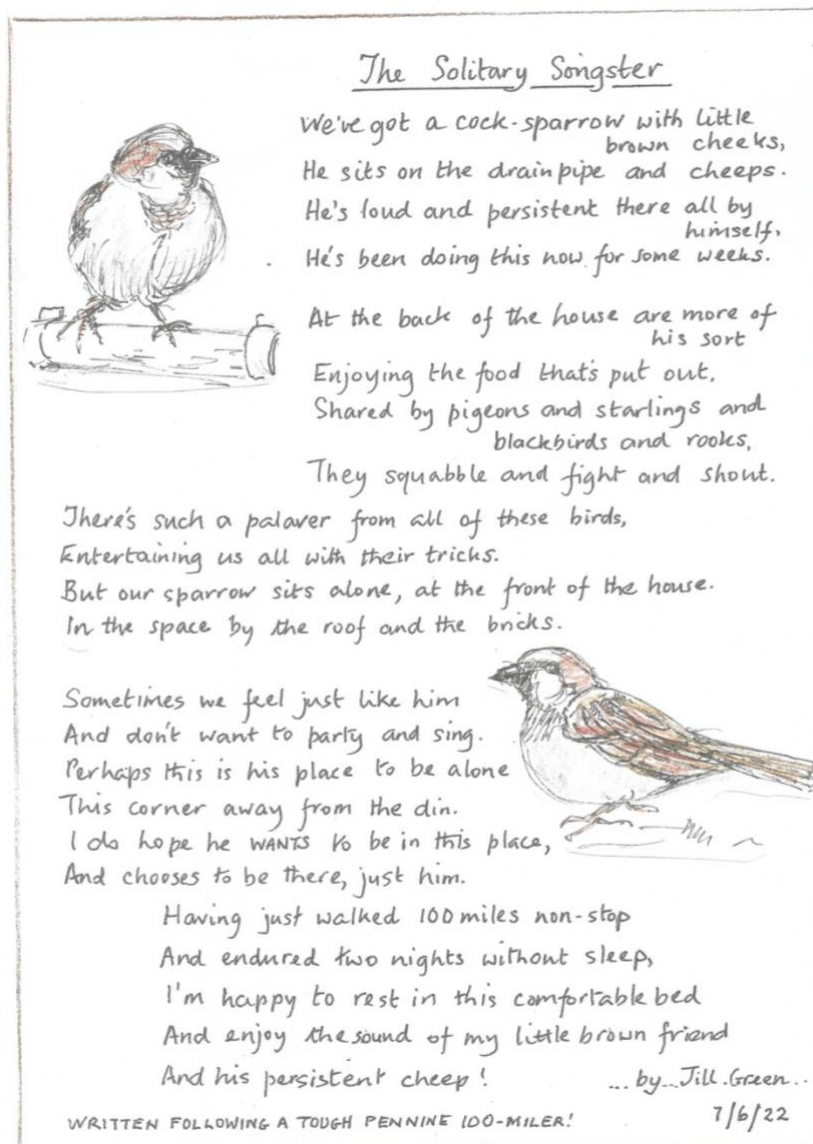 The Solitary Songster
We've got a cock-sparrow with little
brown cheeks,
He sits on the drainpipe and cheeps.
He's loud and persistent there all by
himself,
He's been doing this now for some weeks.
At the back of the house are more of
his sort
Enjoying the food that's put out.
Shared by pigeons and starlings and
blackbirds and rooks,
They squabble and fight and shout.
There's such a palaver from all of these birds,
Entertaining us all with their tricks.
But our sparrow sits alone, at the front of the house.
In the space by the roof and the bricks.
Sometimes we feel just like him
And don't want to party and sing.
Perhaps this is his place to be alone
This corner away from the din.
I do hope he WANTS to be in this place,
And chooses to be there, just him.
Having just walked 100 miles non-stop
And endured two nights without sleep,
I'm happy to rest in this comfortable bed
And enjoy the sound of my little brown friend
And his persistent cheep!
... by... Jill. Green...
7/6/22
WRITTEN FOLLOWING A TOUGH PENNINE 100-MILER!